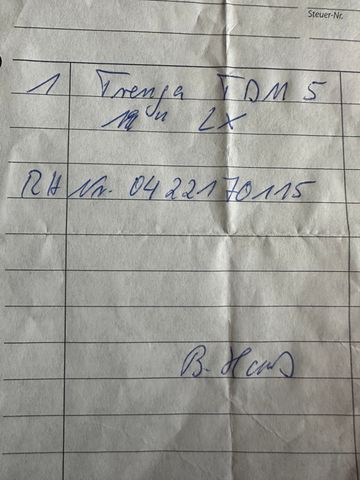 Steuer-Nr.
1 Trenga TDM 5
LX
RH Nr. 0422170115
B.